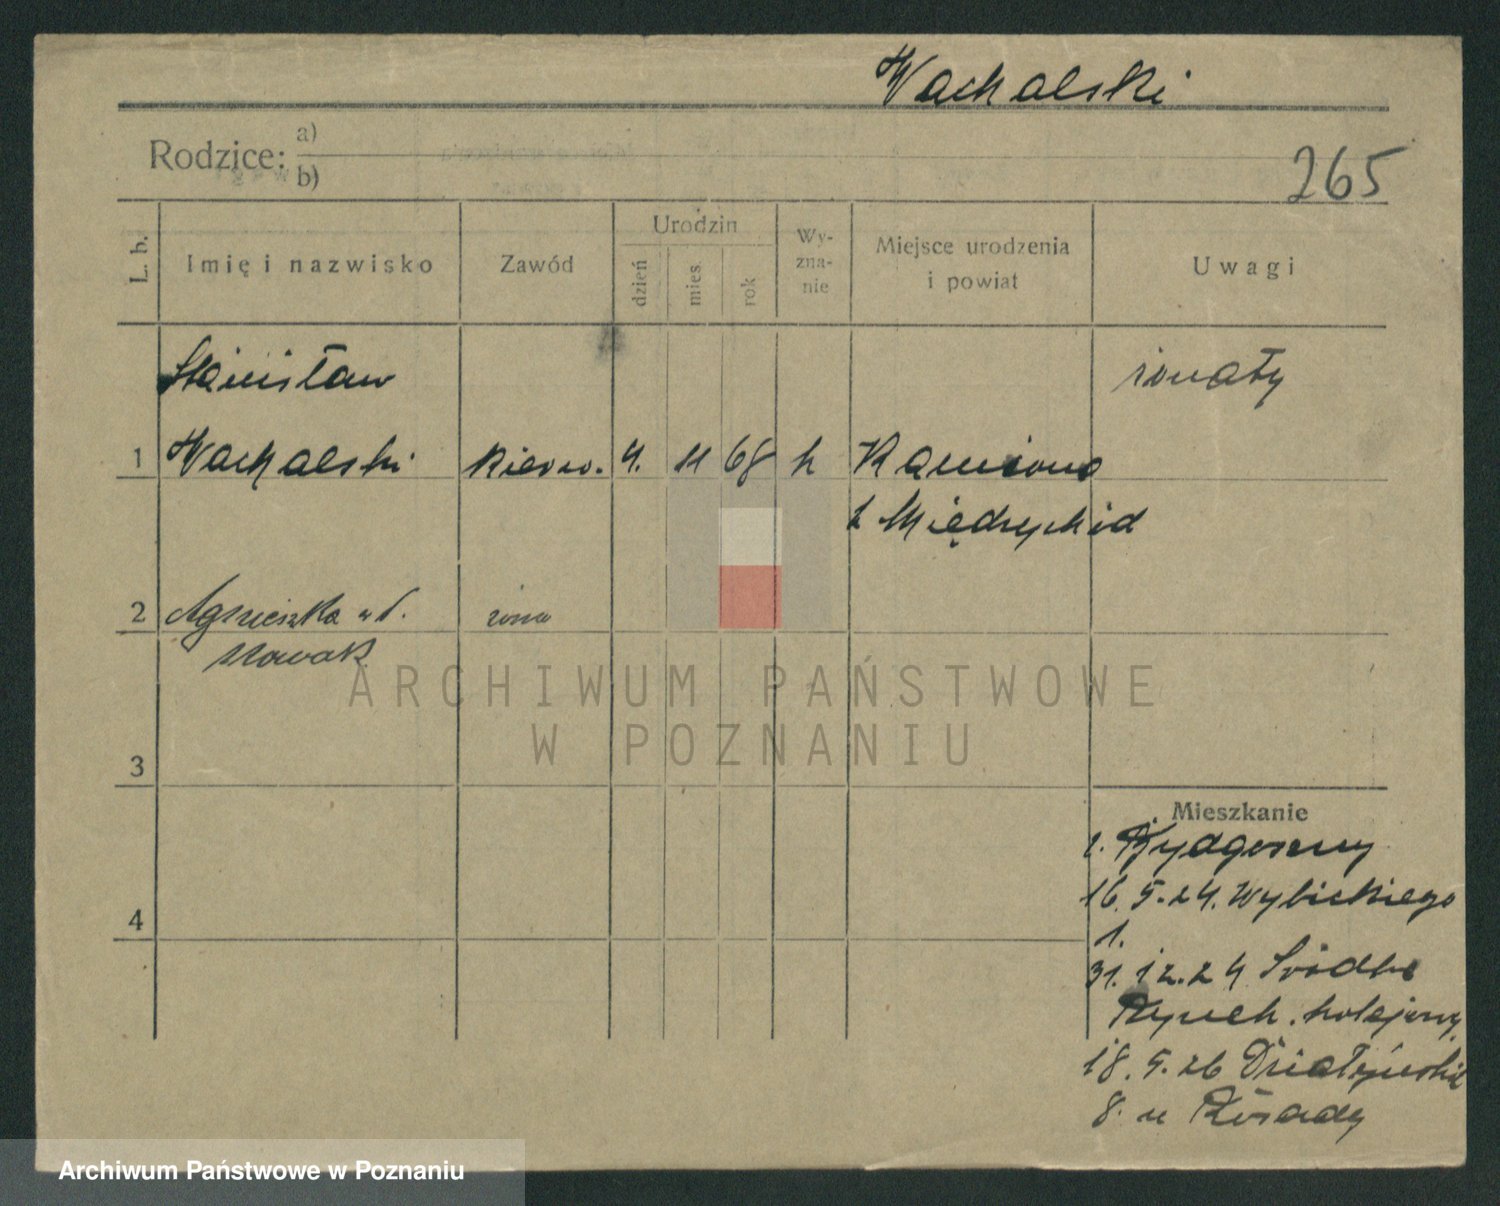 Wachalski
Rodzice: a)
b)
265
L. b.
Imię i nazwisko
Zawód
Urodzin
dzień
mies.
rok
Wy-
zna-
nie
Miejsce urodzenia
i powiat
Uwagi
Stanisław
żonaty
1 Wachalski kierow. 4. 11 68 k Kamiona
p Międzychód
2 Agnieszka z d. żona
Nowak
3
4
Mieszkanie
z. Bydgoszczy
16.5.24. Wybickiego
1.
31.12.24 Śródka
Rynek
18.5.26 Działyńskich
8. u
ARCHIWUM PAŃSTWOWE
W POZNANIU
Archiwum Państwowe w Poznaniu